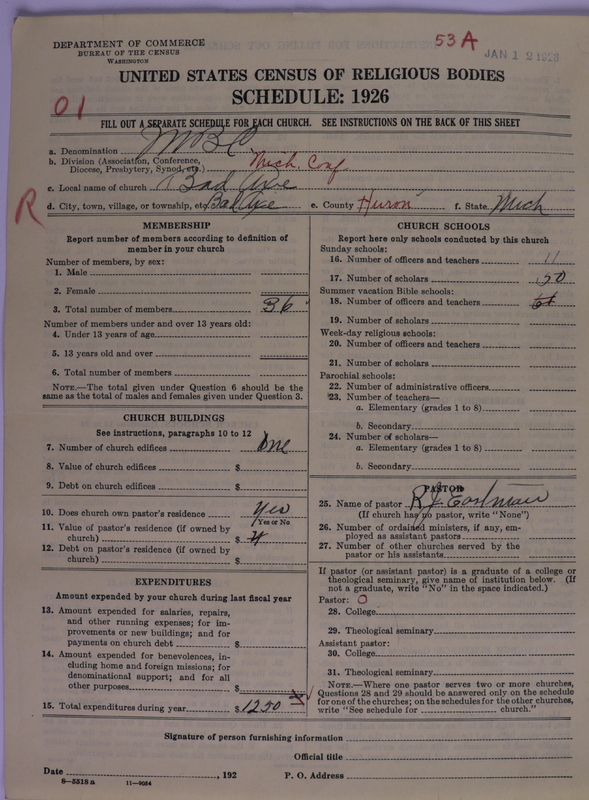 DEPARTMENT OF COMMERCE
BUREAU OF THE CENSUS
WASHINGTON
53A
JAN 12 1928
UNITED STATES CENSUS OF RELIGIOUS BODIES
SCHEDULE: 1926
01
FILL OUT A SEPARATE SCHEDULE FOR EACH CHURCH. SEE INSTRUCTIONS ON THE BACK OF THIS SHEET
a. Denomination MBC
b. Division (Association, Conference, Diocese, Presbytery, Synod, etc.) Mich. Conf
c. Local name of church Bad Axe
R
d. City, town, village, or township, etc. Bad Axe e. County Huron f. State Mich
MEMBERSHIP
Report number of members according to definition of member in your church
Number of members, by sex:
1. Male
2. Female
3. Total number of members 36
Number of members under and over 13 years old:
4. Under 13 years of age
5. 13 years old and over
6. Total number of members
NOTE.—The total given under Question 6 should be the same as the total of males and females given under Question 3.
CHURCH BUILDINGS
See instructions, paragraphs 10 to 12
7. Number of church edifices One
8. Value of church edifices $
9. Debt on church edifices $
10. Does church own pastor's residence Yes
(Yes or No)
11. Value of pastor's residence (if owned by church) $
12. Debt on pastor's residence (if owned by church) $
EXPENDITURES
Amount expended by your church during last fiscal year
13. Amount expended for salaries, repairs, and other running expenses; for improvements or new buildings; and for payments on church debt $
14. Amount expended for benevolences, including home and foreign missions; for denominational support; and for all other purposes $
15. Total expenditures during year $1250
CHURCH SCHOOLS
Report here only schools conducted by this church
Sunday schools:
16. Number of officers and teachers 11
17. Number of scholars 50
Summer vacation Bible schools:
18. Number of officers and teachers
19. Number of scholars
Week-day religious schools:
20. Number of officers and teachers
21. Number of scholars
Parochial schools:
22. Number of administrative officers
23. Number of teachers—
a. Elementary (grades 1 to 8)
b. Secondary
24. Number of scholars—
a. Elementary (grades 1 to 8)
b. Secondary
PASTOR
25. Name of pastor R.J. Eastman
(If church has no pastor, write "None")
26. Number of ordained ministers, if any, employed as assistant pastors
27. Number of other churches served by the pastor or his assistants
If pastor (or assistant pastor) is a graduate of a college or theological seminary, give name of institution below. (If not a graduate, write "No" in the space indicated.)
Pastor: O
28. College
29. Theological seminary
Assistant pastor:
30. College
31. Theological seminary
NOTE.—Where one pastor serves two or more churches, Questions 28 and 29 should be answered only on the schedule for one of the churches; on the schedules for the other churches, write "See schedule for church."
Signature of person furnishing information
Official title
Date , 192 P. O. Address
8—5518 a 11—9054